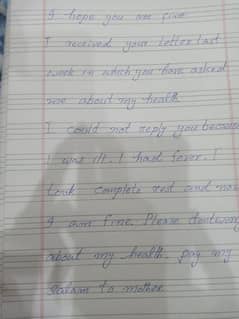 I hope you are fine
I received your letter last
week in which you have asked
me about my health
I could not reply you because
I was ill. I had fever. I
took complete rest and now
I am fine. Please dontworry
about my health. pay my
Salaam to mother